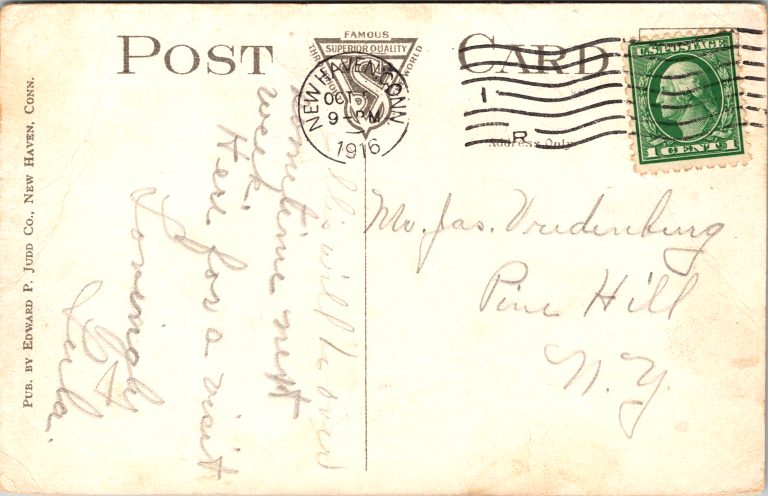 POST CARD
FAMOUS
SUPERIOR QUALITY
THROUGHOUT WORLD
S
NEW HAVEN, CONN.
OCT
9-PM
1916
1
R
Address Only
U.S. POSTAGE
1 CENT 1
PUB. BY EDWARD P. JUDD CO., NEW HAVEN, CONN.
will be over
sometime next
week.
Here for a visit
Lovingly
Mr. Jas. Vredenburg
Pine Hill
N.Y.